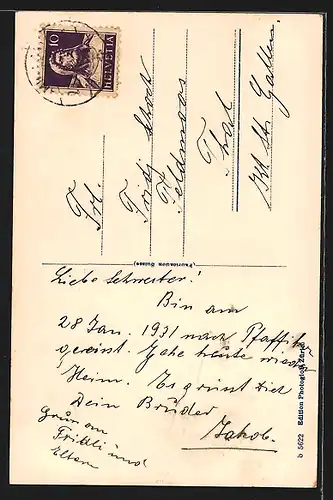 10
HELVETIA
Frl.
Fridj Schoch
Feldmoos
Thal
Kt. St. Gallen
(Fabrication Suisse)
Liebe Schwester!
Bin am
28 Jan. 1931 nach Pfäffikon
gereist. Gehe heute wieder
Heim. Es grüsst Dich
Dein Brüder
Jakob.
Gruss an
Fridli und
Eltern
b 5622 Edition Photoglob Zürich